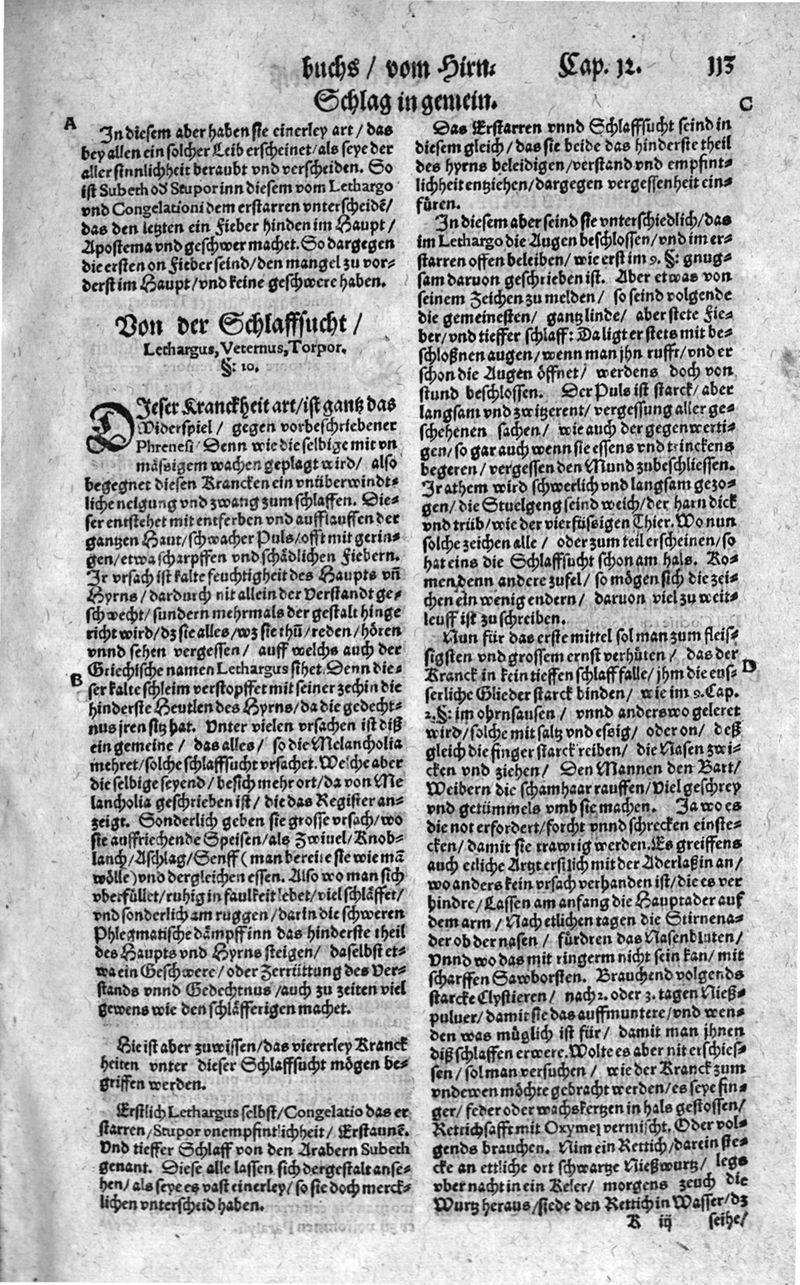 buchs / vom Hirn. Cap. 12. 113
Schlag in gemein.
A
In diesem aber haben sie einerley art / das
bey allen ein solcher Leib erscheinet / als seye der
aller sinnlichheit beraubt vnd verscheiden. So
ist Subeth oď Stupor inn diesem vom Lethargo
vnd Congelationi dem erstarren vnterscheidē /
das den letzten ein Fieber hinden im Haupt /
Apostema vnd geschwer machet. So dargegen
die ersten on Fieber seind / den mangel zu vor-
derst im Haupt / vnd keine geschwere haben.
Von der Schlaffsucht /
Lethargus, Veternus, Torpor.
§: 10.
DJeser Kranckheit art / ist gantz das
Widerspiel / gegen vorbeschriebener
Phrenesi / Denn wie die selbige mit vn
mässigem wachen geplagt wird / also
begegnet diesen Krancken ein vnüberwindt-
liche neigung vnd zwang zum schlaffen. Die-
ser entstehet mit entferben vnd aufflauffen der
gantzen Haut / schwacher Puls / offt mit gerin-
gen / etwa scharpffen vnd schädlichen Fiebern.
Jr vrsach ist kalte feuchtigheit des Haupts vn̄
Hyrns / dardurch nit allein der Verstandt ge-
schwecht / sundern mehrmals der gestalt hinge
richt wird / dz sie alles / wz sie thū / reden / hören
vnnd sehen vergessen / auff welchs auch der
Griechische namen Lethargus sihet. Denn die-
B
ser kalte schleim verstopffet mit seiner zechin die
hinderste Heutlen des Hyrns / da die gedecht-
nus jren sitz hat. Vnter vielen vrsachen ist diß
ein gemeine / das alles / so die Melancholia
mehret / solche schlaffsucht vrsachet. Welche aber
die selbige seyend / besich mehr ort / da von Me
lancholia geschrieben ist / die das Register an-
zeigt. Sonderlich geben sie grosse vrsach / wo
sie auffriechende Speisen / als Zwiuel / Knob-
lauch / Aschlag / Senff ( man bereite sie wie mā
wölle ) vnd dergleichen essen. Also wo man sich
vberfüllet / ruhig in faulkeit lebet / viel schläffet /
vnd sonderlich am ruggen / darin die schweren
Phlegmatische dämpff inn das hinderste theil
des Haupts vnd Hyrns steigen / daselbst et-
wa ein Geschwere / oder Zerrüttung des Ver-
stands vnnd Gedechtnus / auch zu zeiten viel
gewens wie den schläfferigen machet.
Hie ist aber zu wissen / das viererley Kranck
heiten vnter dieser Schlaffsucht mögen be-
griffen werden.
Erstlich Lethargus selbst / Congelatio das er
starren / Stupor vnempfintlichheit / Erstaunē.
Vnd tieffer Schlaf von den Arabern Subeth
genant. Diese alle lassen sich dergestalt anse-
hen / als seye es vast einerley / so sie doch merck-
lichen vnterscheid haben.
C
Das Erstarren vnnd Schlaffsucht seind in
diesem gleich / das sie beide das hinderste theil
des hyrns beleidigen / verstand vnd empfint-
lichheit entziehen / dargegen vergessenheit ein-
füren.
In diesem aber seind sie vnterschiedlich / das
im Lethargo die Augen beschlossen / vnd im er-
starren offen beleiben / wie erst im 9. §: gnug-
sam daruon geschrieben ist. Aber etwas von
seinem Zeichen zu melden / so seind volgende
die gemeinesten / gantz linde / aber stete Fie-
ber / vnd tieffer schlaff: Da ligt er stets mit be-
schloßnen augen / wenn man jhn rufft / vnd er
schon die Augen öffnet / werdens doch von
stund beschlossen. Der Puls ist starck / aber
langsam vnd zwitzerent / vergessung aller ge-
schehenen sachen / wie auch der gegenwerti-
gen / so gar auch wenn sie essens vnd trinckens
begeren / vergessen den Mund zubeschliessen.
Jr athem wird schwerlich vnd langsam gezo-
gen / die Stuelgeng seind weich / der harn dick
vnd trüb / wie der vierfüssigen Thier. Wo nun
solche zeichen alle / oder zum teil erscheinen / so
hat eins die Schlaffsucht schon am hals. Ko-
men denn andere zufel / so mögen sich die zei-
chen ein wenig endern / daruon viel zu weit-
leuff ist zu schreiben.
Nun für das erste mittel sol man zum fleis-
sigsten vnd grossem ernst verhüten / das der
D
Kranck in kein tieffen schlaff falle / jhm die eus-
serliche Glieder starck binden / wie im 9. Cap.
2. §: im ohrnsausen / vnnd anderswo geleret
wird / solche mit saltz vnd essig / oder on / deß
gleich die finger starck reiben / die Nasen zwi-
cken vnd ziehen / Den Mannen den Bart /
Weibern die schamhaar rauffen / Viel geschrey
vnd getümmels vmb sie machen. Ja wo es
die not erfordert / forcht vnnd schrecken einste-
cken / damit sie trawrig werden. Es greiffens
auch etliche Artzt erstlich mit der Aderlaß in an /
wo anders kein vrsach verhanden ist / die es ver
hindre / Lassen am anfang die Hauptader auf
dem arm / Nach etlichen tagen die Stirnena-
der ob der nasen / fürdren das Nasenbluten /
Vnnd wo das mit ringerm nicht sein kan / mit
scharffen Sawborsten. Brauchend volgends
starcke Clystieren / nach 2. oder 3. tagen Nieß-
puluer / damit sie das auffmuntere / vnd wen-
den was müglich ist für / damit man jhnen
diß schlaffen erwere. Wolte es aber nit erschies-
sen / sol man versuchen / wie der Kranck zum
vndewen möchte gebracht werden / es seye fin-
ger / feder oder wachskertzen in hals gestossen /
Rettichsafft mit Oxymel vermischt. Oder vol-
gends brauchen. Nim ein Rettich / darein ste-
cke an ettliche ort schwartze Nießwurtz / legs
vber nacht in ein Keler / morgens zeuch die
Wurtz heraus / siede den Rettich in Wasser / dz
K iij seihe /